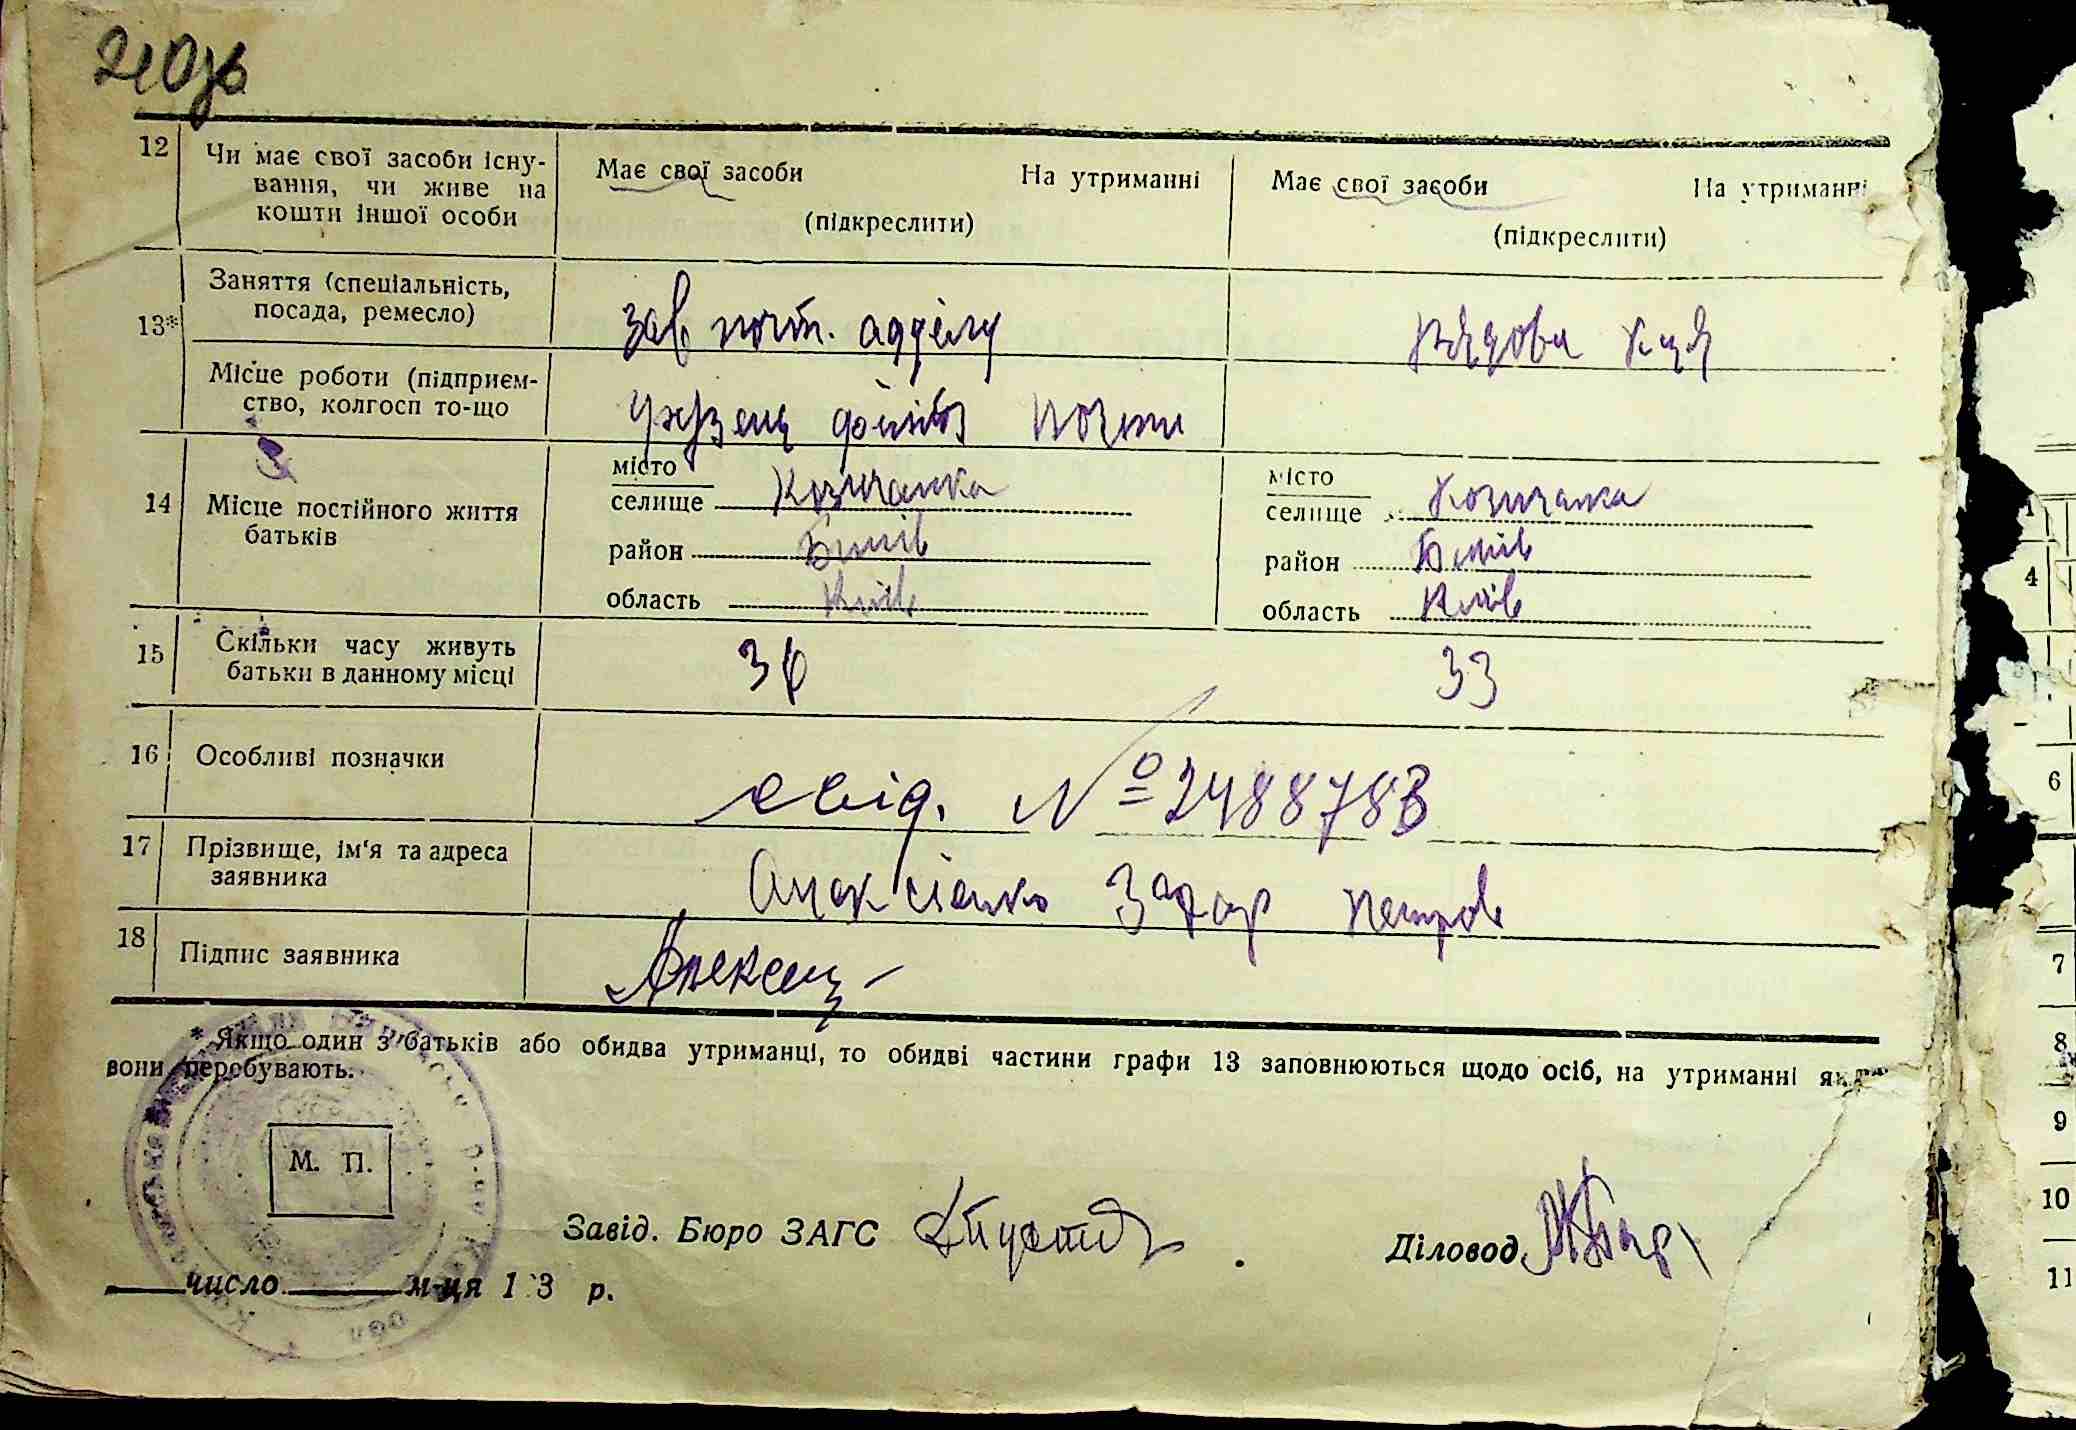 210зв
12 Чи має свої засоби існу-
вання, чи живе на
кошти іншої особи
Має свої засоби На утриманні
(підкреслити)
Має свої засоби На утриманні
(підкреслити)
13*
Заняття (спеціальність,
посада, ремесло)
зав почт.
Місце роботи (підприєм-
ство, колгосп то-що
14 Місце постійного життя
батьків
місто
селище Козичанка
район
область Київ
місто
селище Козичанка
район
область Київ
15 Скільки часу живуть
батьки в данному місці
36
33
16 Особливі позначки
свід. № 2488783
17 Прізвище, ім'я та адреса
заявника
Олексієнко Захар Петров
18 Підпис заявника
* Якщо один з батьків або обидва утриманці, то обидві частини графи 13 заповнюються щодо осіб, на утриманні яких
вони перебувають.
М. П.
Завід. Бюро ЗАГС
Діловод
число м-ця 193 р.
4
6
7
8
9
10
11